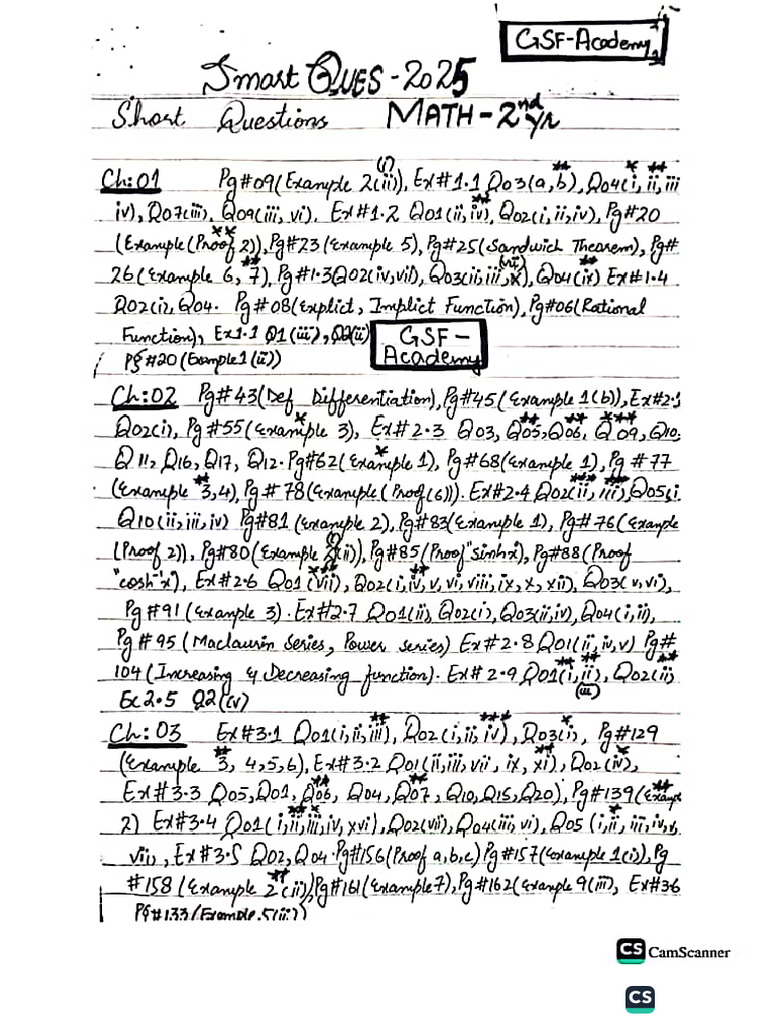 GSF-Academy
Smart QUES-2025
Short Questions MATH-2nd yr
Ch:01 Pg#09(Example 2(ii)(i)), Ex#1.1 Q03(a,b**), Q04(i*, ii**, iii
iv), Q07(iii), Q09(iii, vi). Ex#1.2 Q01(ii,iv**), Q02(i,ii,iv), Pg#20
(Example(Proof 2**)), Pg#23(Example 5), Pg#25(Sandwich Theorem), Pg#
26(Example 6, 7**), Pg#1.3Q02(iv,vii), Q03(ii,iii,x)(vii), Q04(ix**) Ex#1.4
Q02(i), Q04. Pg#08(Explict, Implict Function), Pg#06(Rational
Function), Ex1.1 Q1(iii), Q2(ii)
GSF-
Academy
Pg#20(Example1(ii))
Ch:02 Pg#43(Def Differentiation), Pg#45(Example 1(b)), Ex#2.1
Q02(i), Pg#55(Example* 3), Ex#2.3 Q03, Q05**, Q06**, Q09***, Q10,
Q11, Q16, Q17, Q12. Pg#62(Example* 1), Pg#68(Example 1), Pg #77
(Example 3*,4), Pg#78(Example(Proof(6)). Ex#2.4 Q02(ii**, iii**), Q05(i.
Q10(ii,iii,iv) Pg#81 (Example 2), Pg#83(Example 1), Pg#76(Example
(Proof 2)), Pg#80(Example 2(ii)), Pg#85(Proof "sinh x), Pg#88(Proof
"cosh⁻¹x), Ex#2.6 Q01(vii**), Q02(i,iv**,v,vi,viii,ix,x,xii), Q03(v,vi),
Pg#91(Example 3). Ex#2.7 Q01(ii), Q02(i), Q03(ii,iv), Q04(i,ii),
Pg#95(Maclaurin Series, Power series) Ex#2.8 Q01(ii,iv,v) Pg#
104(Increasing & Decreasing function). Ex#2.9 Q01(i**,ii**)(iii), Q02(ii**)
Ex 2.5 Q2(iv)
Ch:03 Ex#3.1 Q01(i,ii,iii**), Q02(i,ii,iv***), Q03(i*), Pg#129
(Example 3**, 4,5,6), Ex#3.2 Q01(ii,iii,vii,ix,xi**), Q02(iv*),
Ex#3.3 Q05, Q01, Q06**, Q04, Q07**, Q10, Q15, Q20), Pg#139(Example**
2) Ex#3.4 Q01(i,ii**,iii*,iv,xvi), Q02(vii), Q04(iii,vi), Q05(i,ii*,iii,iv,v,
vii, Ex#3.5 Q02, Q04. Pg#156(Proof a,b,c) Pg#157(Example 1(i)), Pg
#158(Example 2**(ii)) Pg#161(Example7), Pg#162(Example 9(iii), Ex#3.6
Pg#133(Example.5(ii))
CS CamScanner
CS